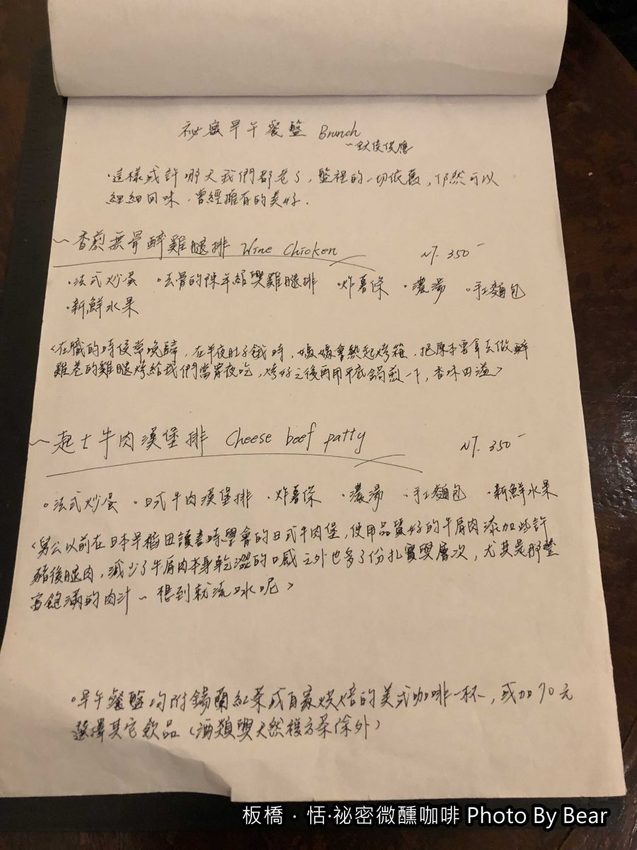 祕密早午餐盤 Brunch
~全天候供應
·這樣或許哪天我們都老了，盤裡的一切依舊，仍然可以
細細回味，曾經擁有的美好.
~香煎無骨醉雞腿排 Wine Chicken NT. 350-
·法式炒蛋 ·去骨的 紹興雞腿排 ·炸薯條 ·濃湯 ·手工麵包
·新鮮水果
<在 的時侯常晚歸，在半夜肚子餓時，媽媽會 起烤箱，把原 要拿去做醉
雞卷的雞腿烤給我們當宵夜吃，烤好之後再用平底鍋煎一下，香味四溢>
~起士牛肉漢堡排 Cheese beef patty NT. 350-
·法式炒蛋 ·日式牛肉漢堡排 ·炸薯條 ·濃湯 ·手工麵包 ·新鮮水果
<舅公以前在日本早稻田讀書時學會的日式牛肉堡，使用品質好的牛肩肉添加些許
豬後腿肉，減少了牛肩肉本身乾澀的口感之外也多了份扎實與層次，尤其是那豐
富飽滿的肉汁~想到就流口水呢>
·早午餐盤均附錫蘭紅茶或自家烘焙的美式咖啡一杯，或加70元
選擇其它飲品（酒類與天然複方茶除外）
板橋．恬·祕密微醺咖啡 Photo By Bear